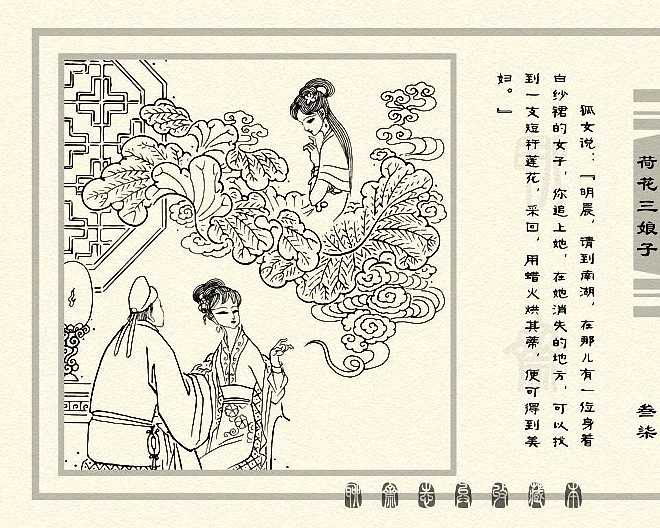 狐女说：『明晨，请到南湖，在那儿有一位身着
白纱裙的女子，你追上她，在她消失的地方，可以找
到一支短秆莲花，采回，用蜡火烘其蒂，便可得到美
妇。』
荷花三娘子
叁柒
聊斋志异收藏本